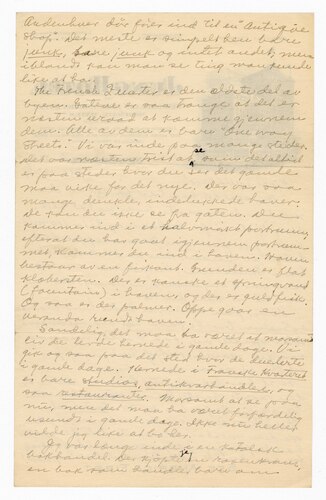 Andenhver dör förer ind til en "Antique
Shop". Det meste er simpelthen bare
junk, bare junk og intet andet, men
iblandt kan man se ting man kunde
like at ha.
The French Quarter er den eldste del av
byen. Gatene er saa trange at det er
næsten uraad at komme gjennem
dem. Alle av dem er bare "One Way
Streets". Vi var inde paa mange steder.
Det var næsten trist at se som det altid
er paa steder hvor du ser det gamle
maa vike for det nye. Der var saa
mange deilige, indelukkede haver.
De kan du ikke se fra gaten. Du
kommer ind i et halvmørkt portrum,
efterat du har gaat igjennem portrum-
met, kommer du ind i haven. Haven
bestaar av en firkant. Grunden er flat
klebersten. Der er kanske et springvand
(fountain) i haven, og der er gulfisk.
Og saa er der palmer. Oppe gaar en
veranda rundt haven.
Sandelig, det maa ha været et morsomt
liv de levde hernede i gamle dage. Vi
gik og saa paa det sted hvor de duellerte
i gamle dage. Hernede i Franske Kvarteret
er bare studios, antikvarhandler, og
saa restauranter. Morsomt at se paa
mig, men det maa ha været forfærdelig
usundt i gamle dage. Ikke nu heller
vilde jeg like at bo der.
Jo var længe inde i en katolsk
bokhandel. Der kjøpte jeg en rosenkrans,
en bok som handler bare om